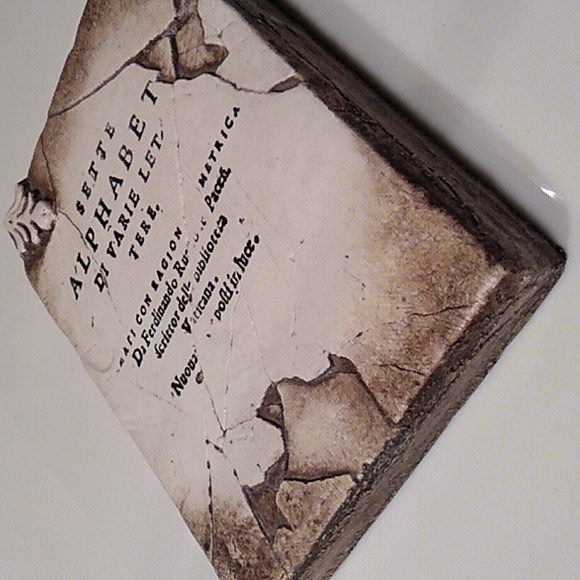 SETTE
ALPHABET
DI VARIE LET,
TERE.
MATI CON RAGION METRICA
Da Ferdinando Paceá
scrittor della biblioteca
Vaticana.
posti in luce.